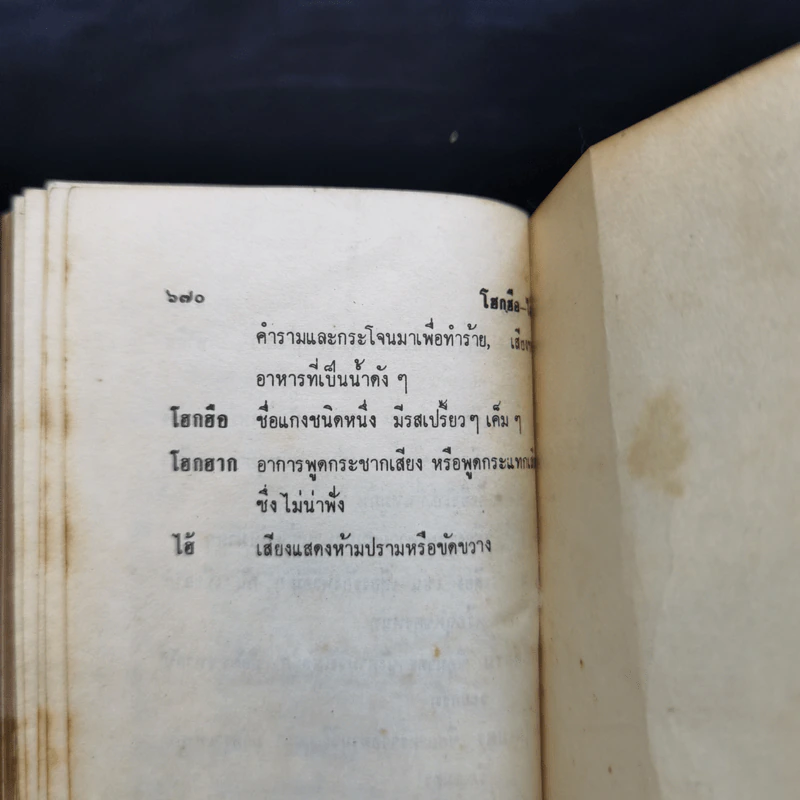 ๖๗๐ โฮกฮือ-
คำรามและกระโจนมาเพื่อทำร้าย,
อาหารที่เป็นน้ำดัง ๆ
โฮกฮือ ชื่อแกงชนิดหนึ่ง มีรสเปรี้ยว ๆ เค็ม ๆ
โฮกฮาก อาการพูดกระชากเสียง หรือพูดกระแทก
ซึ่ง ไม่น่าฟัง
ไฮ้ เสียงแสดงห้ามปรามหรือขัดขวาง